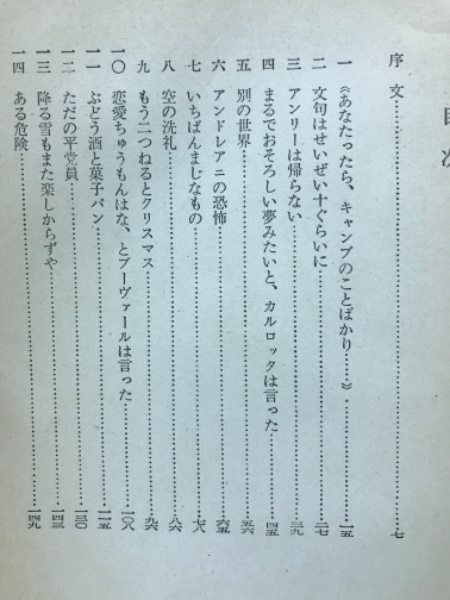 目次
序文…………七
一 《あなたったら、キャンプのことばかり……》…………一五
二 文句はせいぜい十ぐらいに…………二七
三 アンリーは帰らない…………三九
四 まるでおそろしい夢みたいと、カルロッタは言った…………四五
五 別の世界…………五六
六 アンドレアニの恐怖…………六五
七 いちばんまじなもの…………七八
八 空の洗礼…………八六
九 もう二つねるとクリスマス…………九六
一〇 恋愛ちゅうもんはな、とブーヴァールは言った…………一〇八
一一 ぶどう酒と菓子パン…………一一五
一二 ただの平党員…………一三〇
一三 降る雪もまた楽しからずや…………一四三
一四 ある危険…………一四九